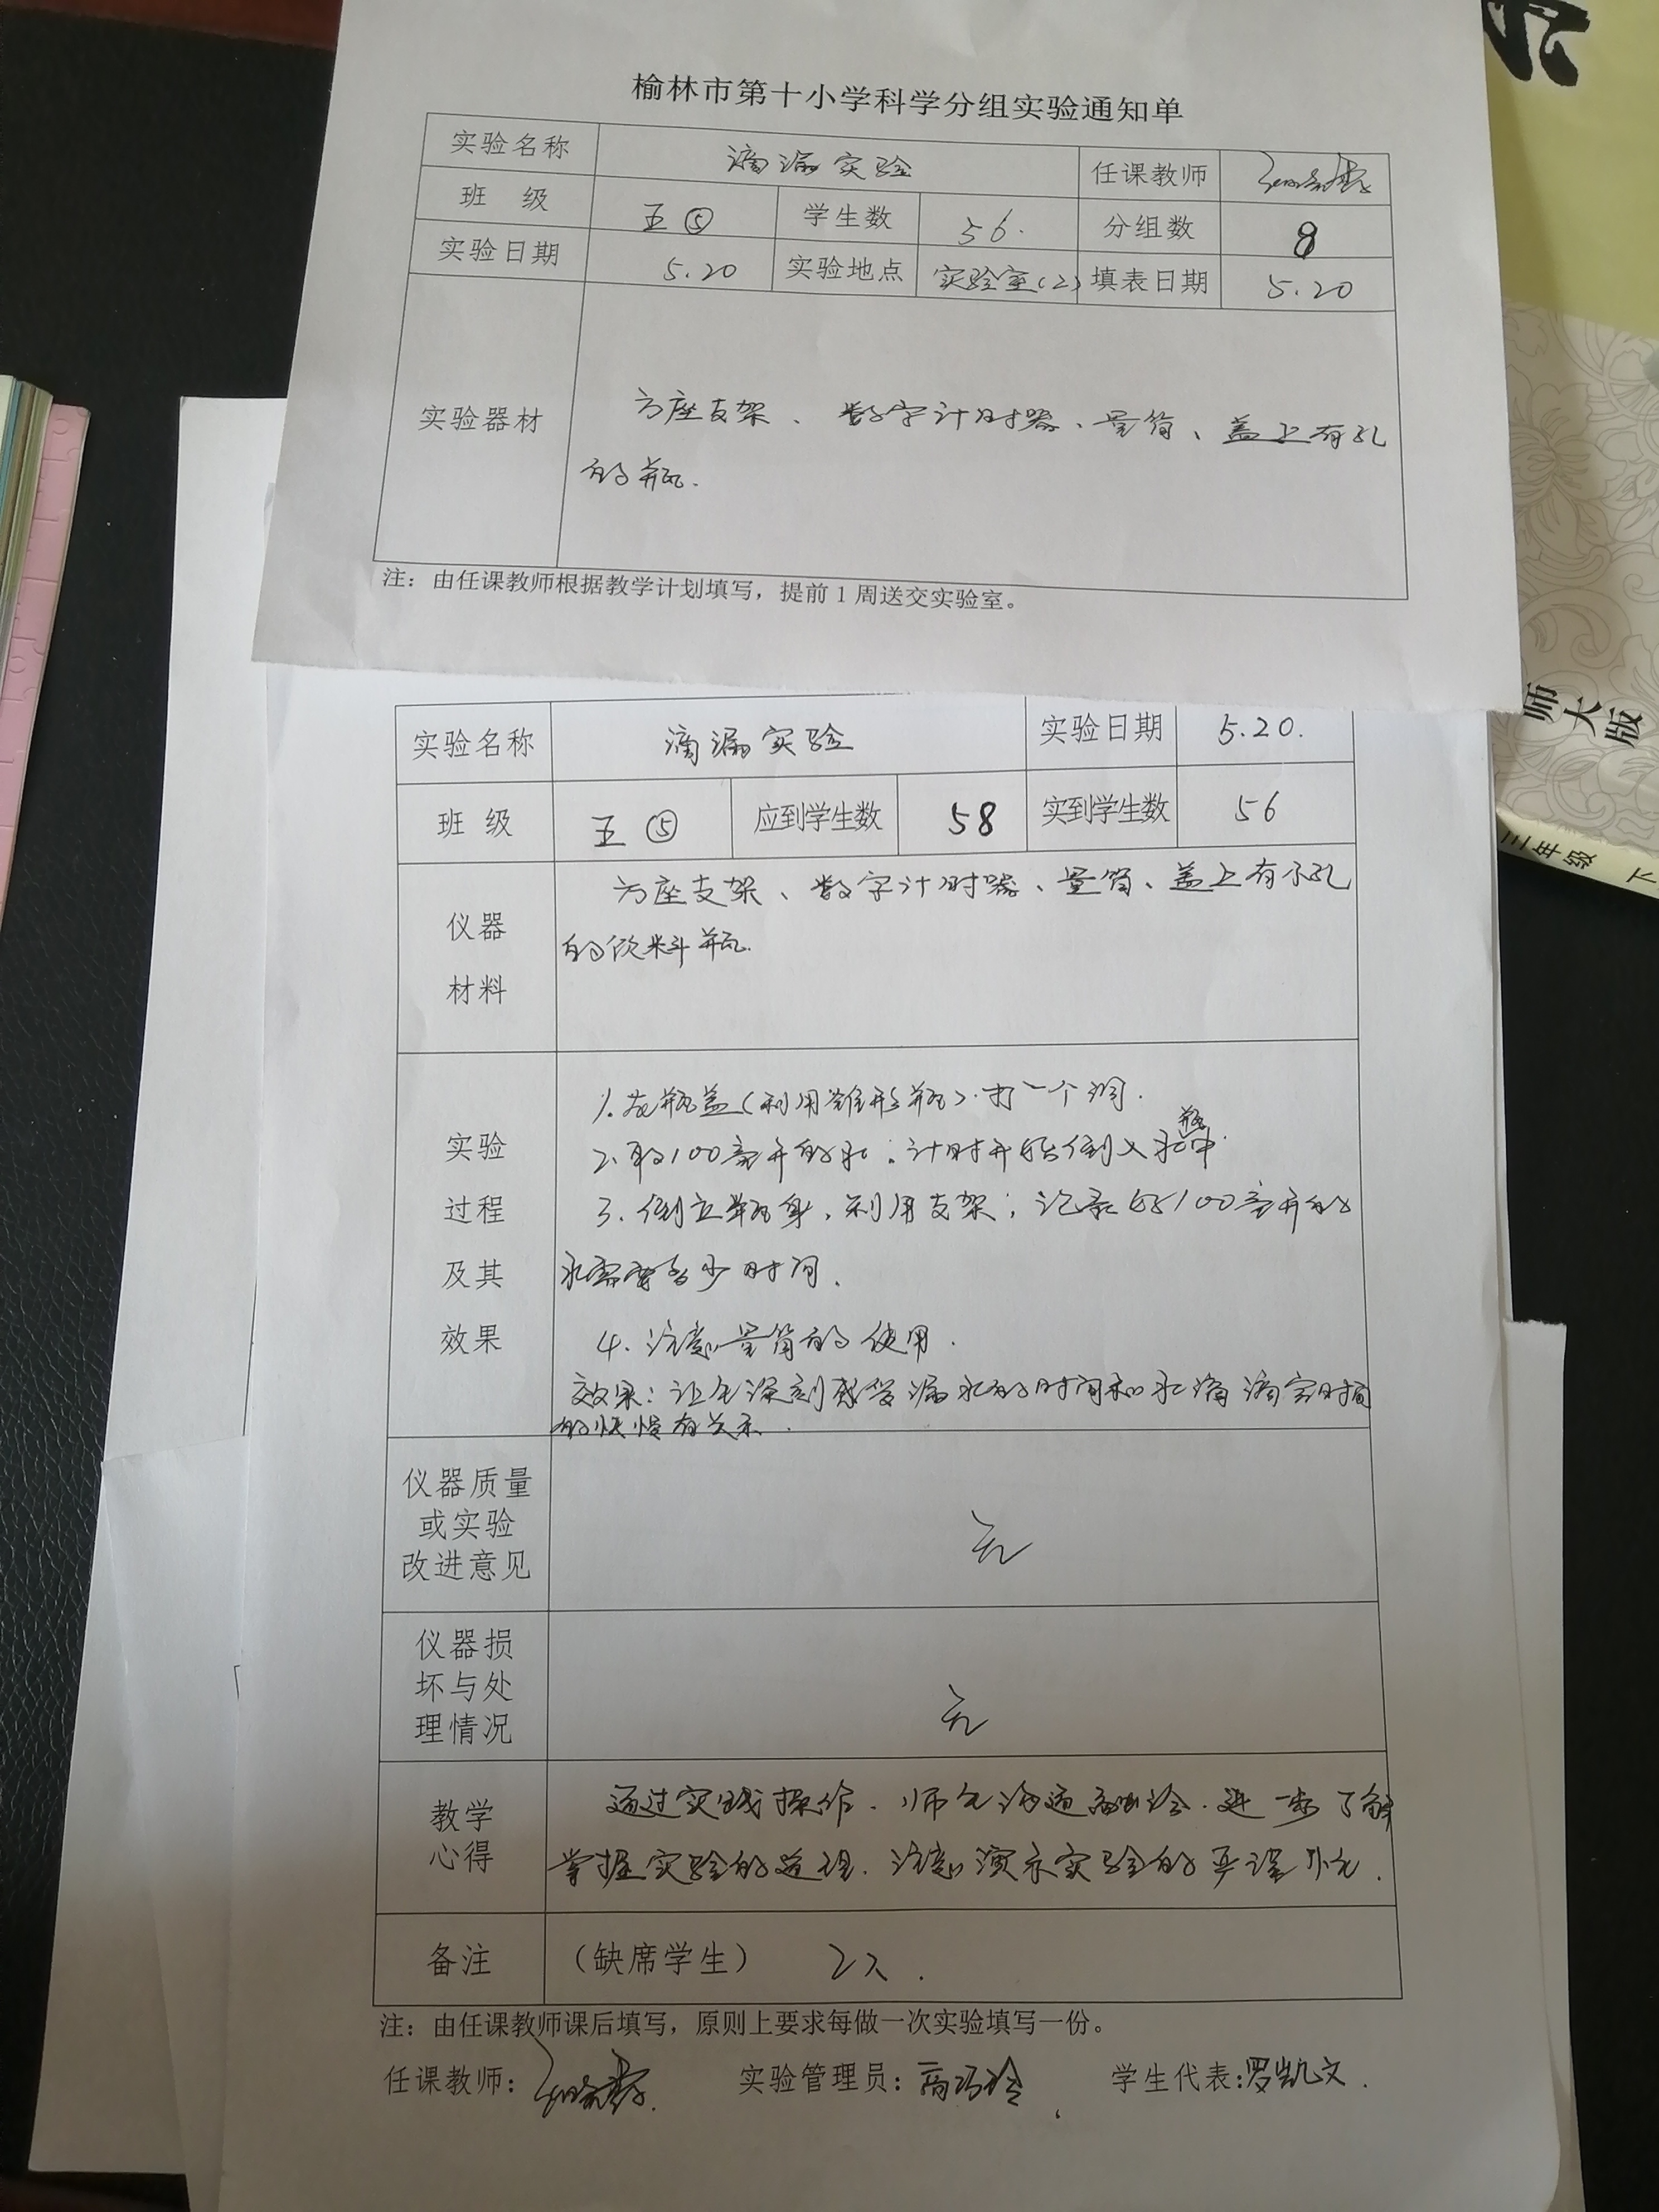 榆林市第十小学科学分组实验通知单
实验名称 滴漏实验 任课教师
班 级 五⑤ 学生数 56. 分组数 8
实验日期 5.20 实验地点 实验室(2) 填表日期 5.20
实验器材 方座支架、数字计时器、量筒、盖上有孔
的瓶.
注：由任课教师根据教学计划填写，提前1周送交实验室。
实验名称 滴漏实验 实验日期 5.20.
班 级 五⑤ 应到学生数 58 实到学生数 56
仪器
材料
方座支架、数字计时器、量筒、盖上有小孔
的饮料瓶.
实验
过程
及其
效果
1.在瓶盖(利用锥形瓶).打一个洞.
2.取100毫升的水；计时开始倒入瓶中.
3.倒立瓶身,利用支架；记录 100毫升的
水需要多少时间.
4.注意量筒的使用.
效果：让生深刻感受漏水的时间和水滴滴完时间
的快慢有关系.
仪器质量
或实验
改进意见
无
仪器损
坏与处
理情况
无
教学
心得
通过实践操作.师生沟通 .进一步了解
掌握实验的道理.注意演示实验的
备注 （缺席学生） 2人.
注：由任课教师课后填写，原则上要求每做一次实验填写一份。
任课教师： 实验管理员： 学生代表:罗凯文.
师大版
三年级 下